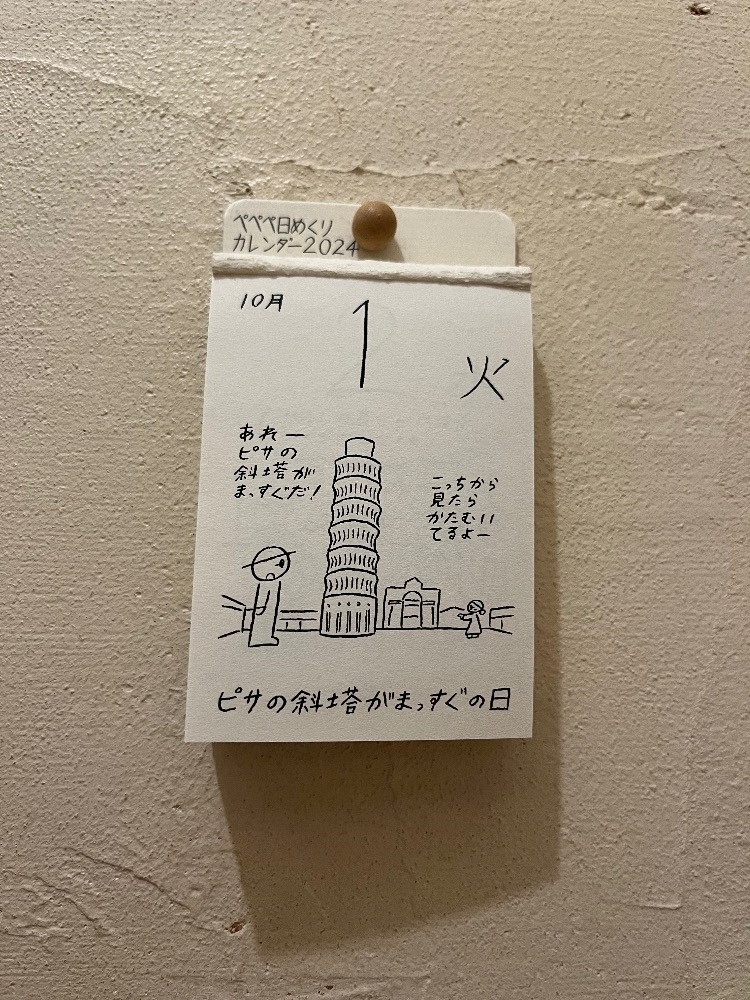 ペペペ日めくり
カレンダー2024
10月
1
火
あれー
ピサの
斜塔が
まっすぐだ!
こっちから
見たら
かたむい
てるよー
ピサの斜塔がまっすぐの日